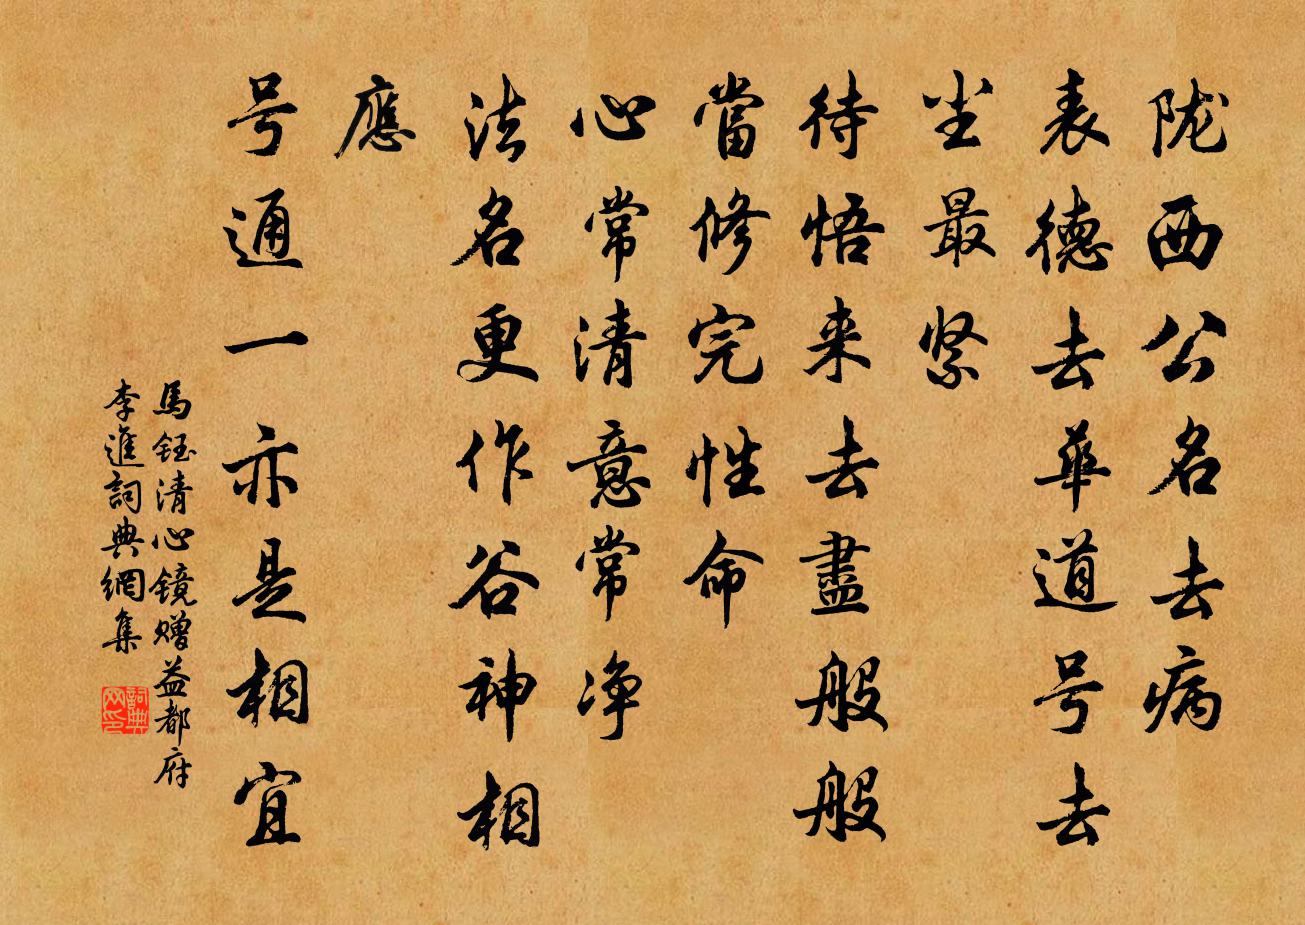 陇西公名去病
表德去華道号去
尘最紧
待悟来去盡般般
當修完性命
心常清意常净
法名更作谷神相
應
号通一亦是相宜
馬鈺清心镜赠益都府
李進詞典網集
詞典网印